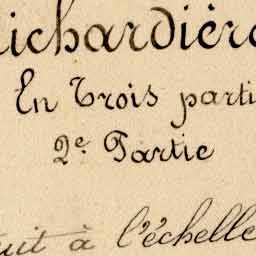 ichardière
En Trois parti
2e. Partie
uit à l'échelle